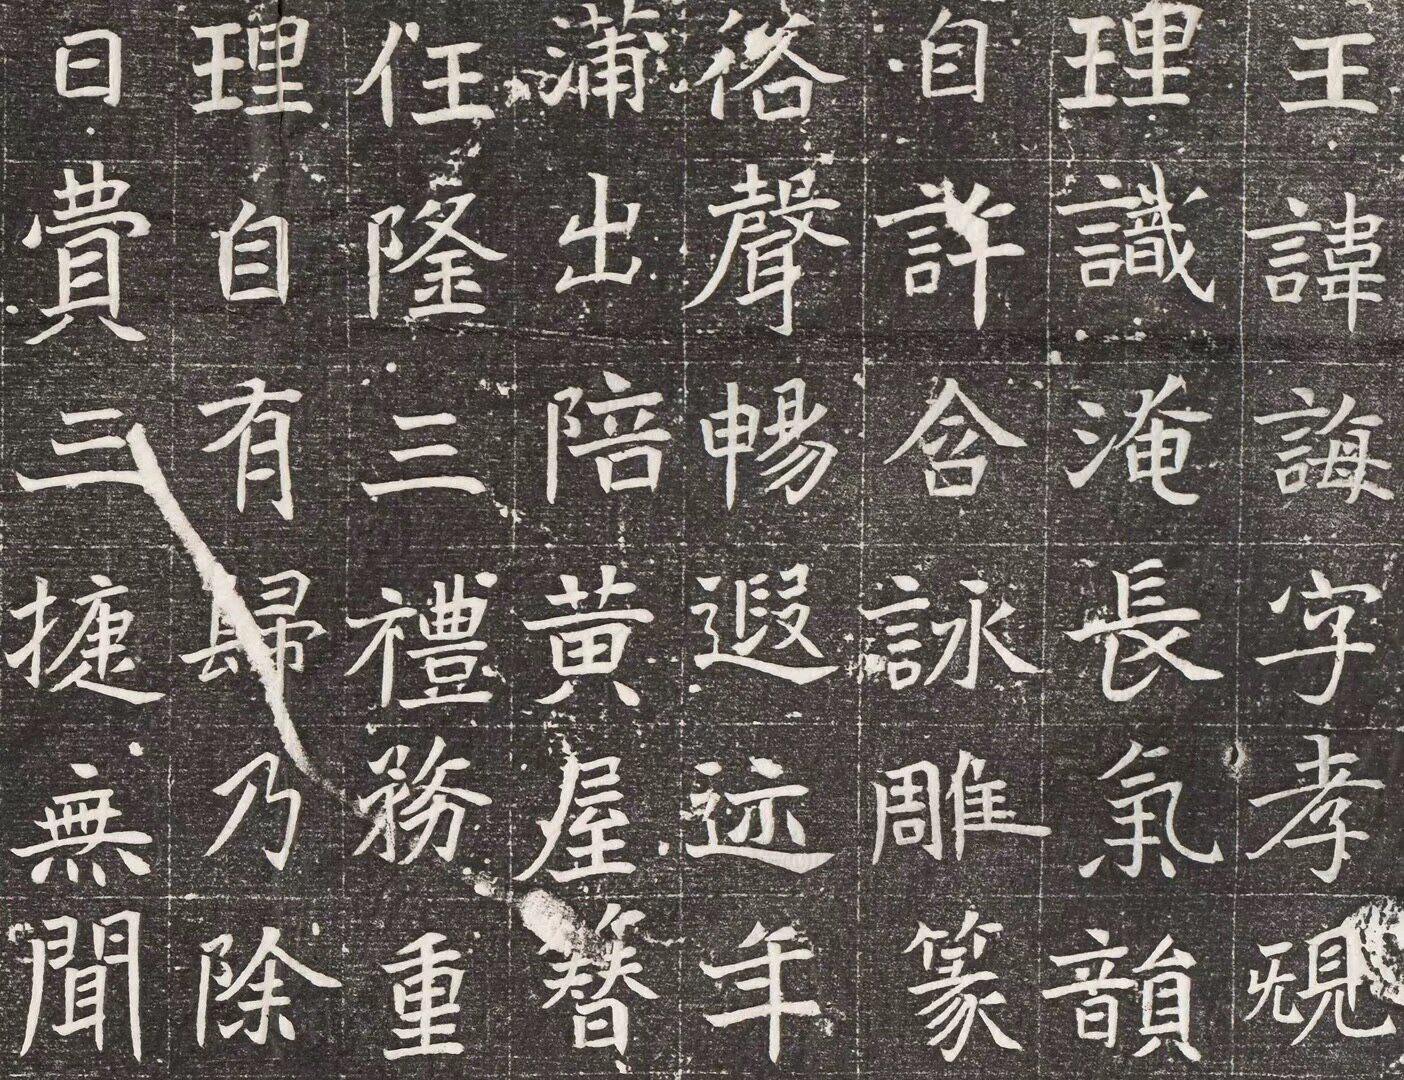 王諱誨字孝規
理識淹長氣韻
自詳含詠雕篆
俗聲暢遐迩年
蒲出陪黄屋替
任隆三禮務重
理自有歸乃除
日費三捷無聞